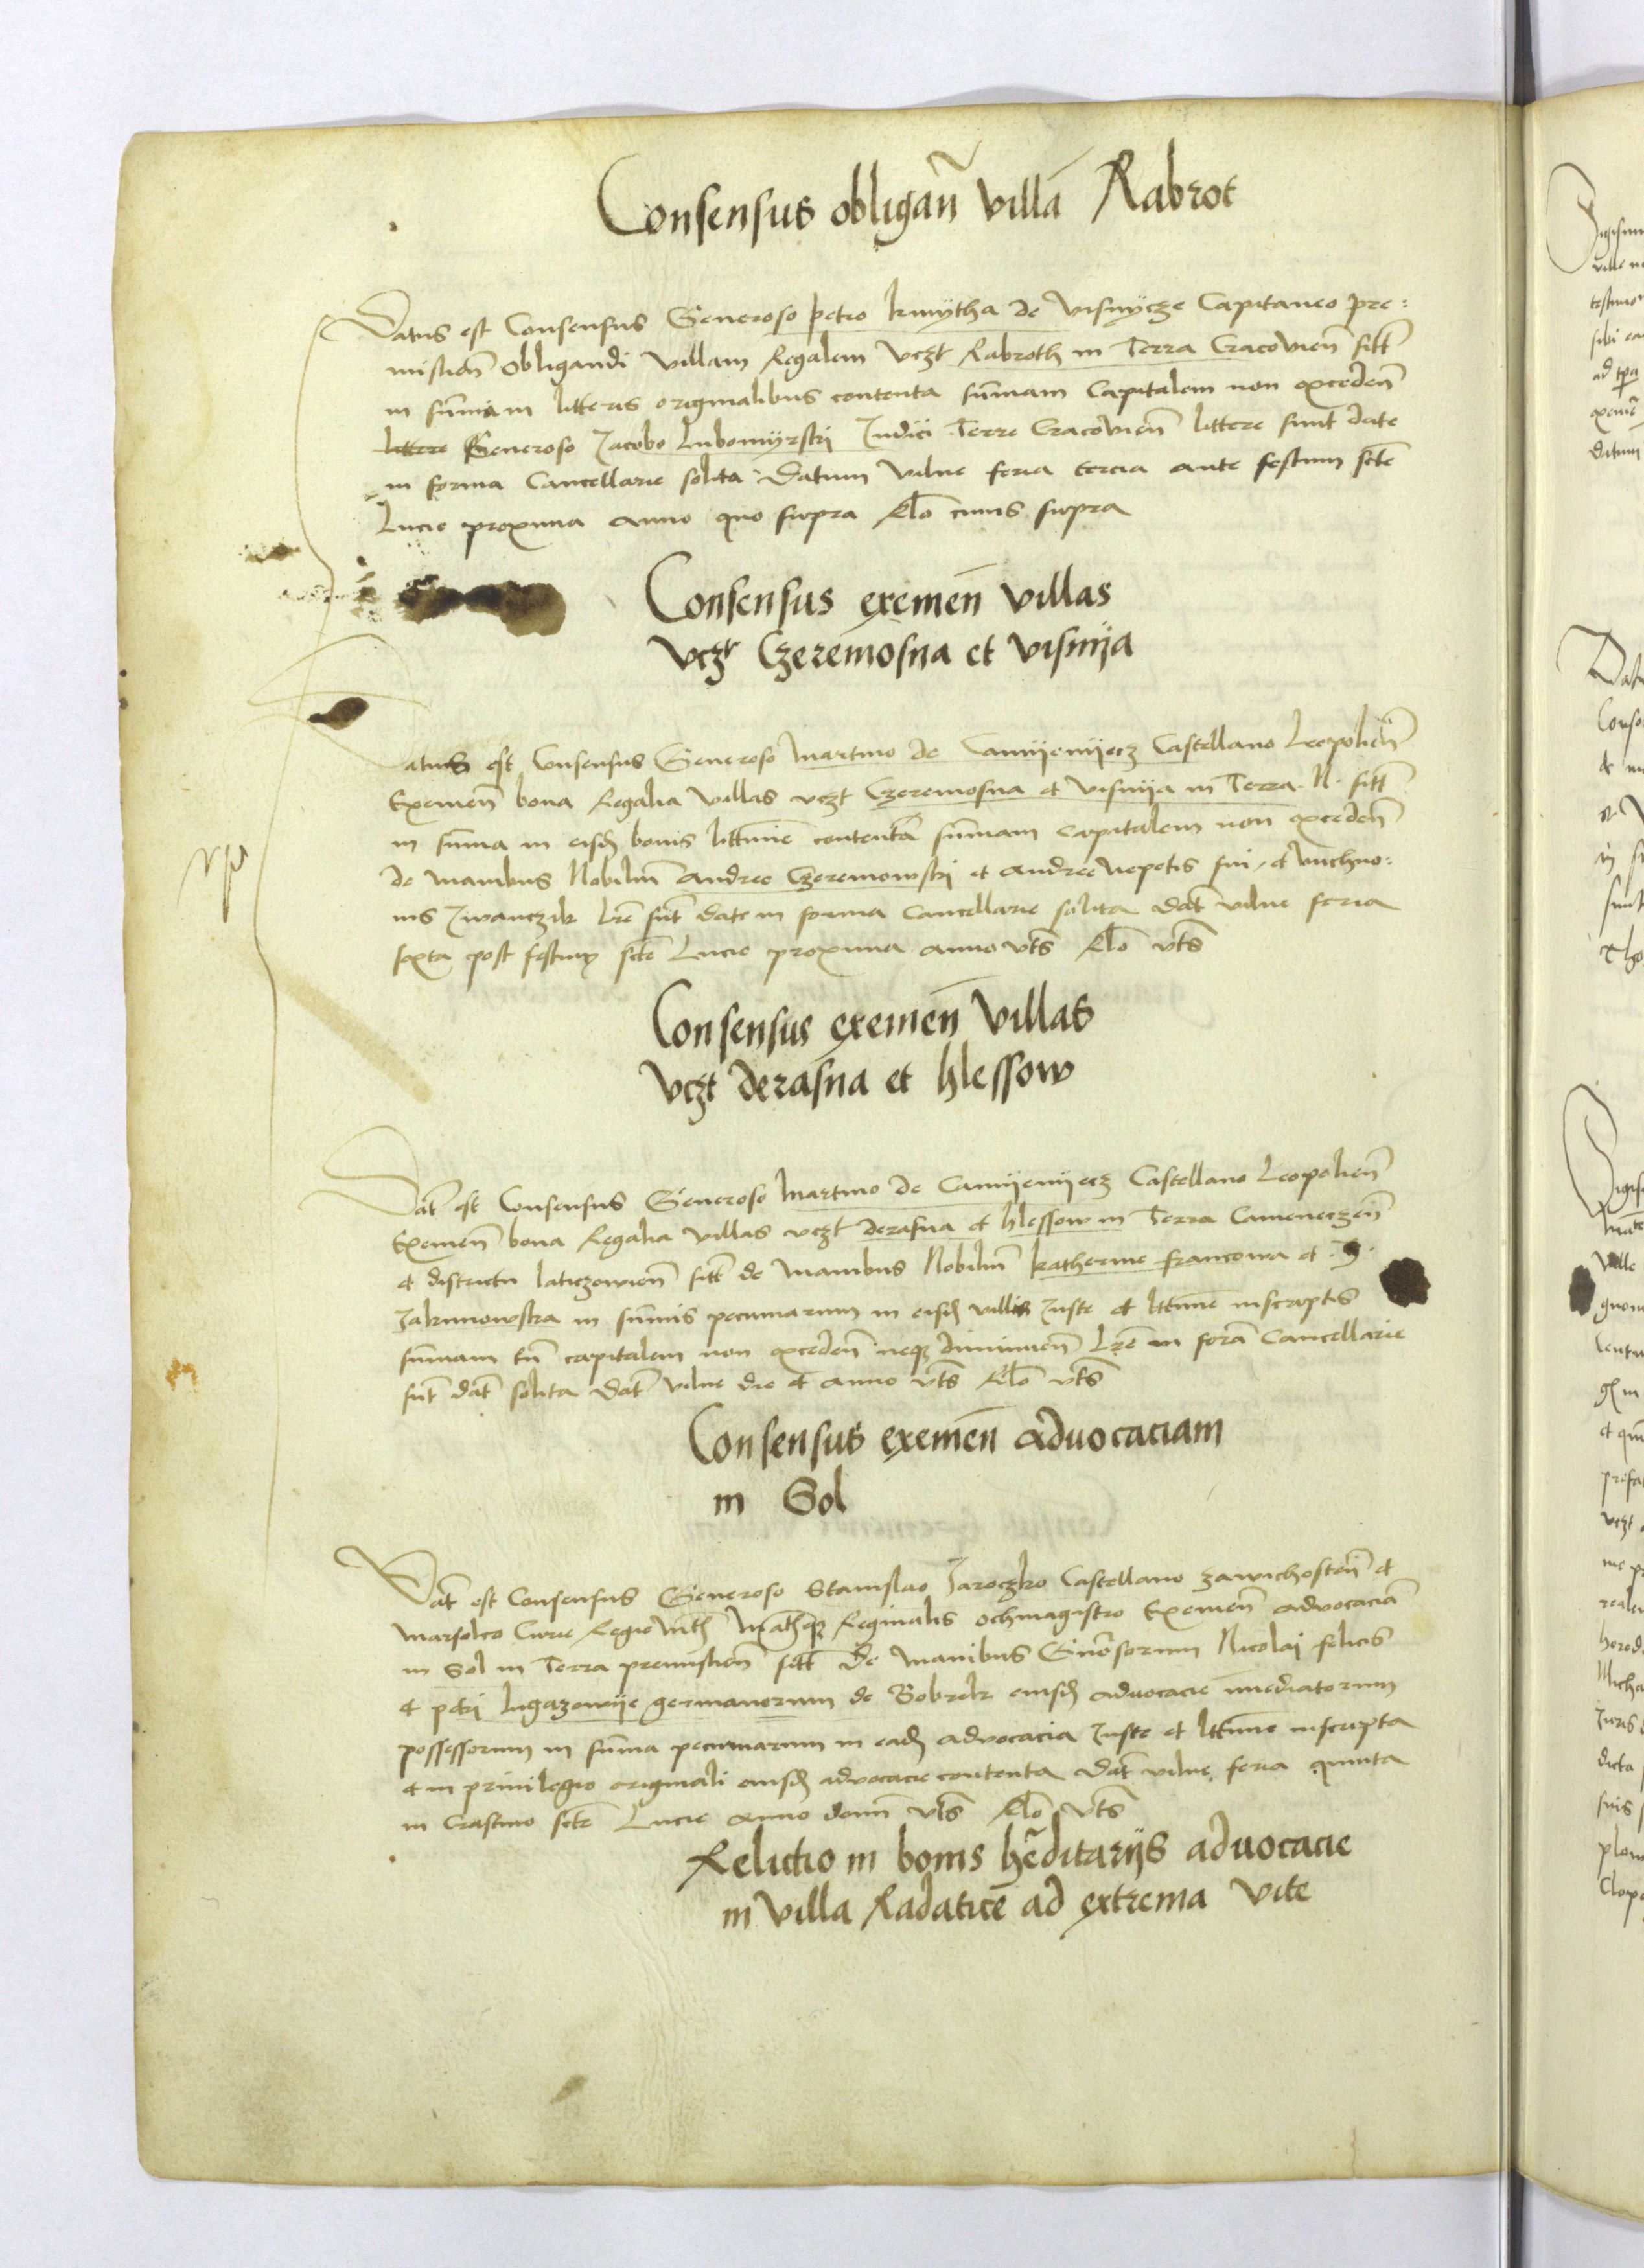 Consensus obligan̄ villā Rabrot
Datus est Consensus Generoso petro kmÿtha de visnÿcze Capitaneo pre:
mislien̄ obligandi villam Regalem vczt Rabroth in Terra Cracovien̄ sitt̄
in sum̄is in litteris originalibus contenta sum̄am Capitalem non exceden̄
littere Generoso Jacobo Lubomÿrski Judici Terre Cracovien̄ littere sunt date
in forma Cancellarie solita Datum vilne feria tercia ante festum scte
Lucie proxima anno quo supra Rlo cuius supra
Consensus exemen̄ villas
vczt Czeremosna et visnija
Datus est Consensus Generoso Martino de Camijenijecz Castellano Leopolien̄
Exemen̄ bona Regalia villas vczt Czeremosna et visnija in Terra N. sitt̄
in sum̄a in eisd bonis littime contentā sum̄am capitalem non exceden̄
de manibus Nobiliū Andree Czeremowski et andree nepotis sui et
Iwanczik lrē sunt date in forma cancellarie solita dat̄ vilne feria
sexta post festum scte Lucie proxima anno vts Rlo vts
Consensus exemen̄ villas
vczt derasna et hlessow
Dat̄ est Consensus Generoso Martino de Camijenijecz Castellano Leopolien̄
Exemen̄ bona Regalia villas vczt derasna et hlessow in Terra Cameneczen̄
et districtu laticzowien̄ sitt̄ de manibus Nobiliū katherine francowa et
Jakimowska in sum̄is pecuniarum in eisd villis Juste et littime inscriptis
sum̄am tn̄ capitalem non exceden̄ neqz diminuen̄ lrē in formā Cancellarie
sunt dat̄ solita dat̄ vilne die et anno vts Rlo vts
Consensus exemen̄ advocaciam
in Sol
Dat̄ est Consensus Generoso Stanislao Jaroczko Castellano zawichosten̄ et
marsalco Curie Regie Reginalis ochmagistro Exemen̄ advocaciā
in Sol in Terra premislien̄ sitt̄ de manibus Gnōsorum Nicolai felicis
et petri ligazowije germanorum de Bobrek eiusd advocacie im̄ediatorum
possessorum in sum̄a pecuniarum in eadē advocacia Juste et littime inscripta
et in privilegio originali eiusd advocacie contenta dat̄ vilne feria quinta
in Crastino scte Lucie anno domī vts Rlo vts
Relictio in bonis hēditarijs advocacie
in villa Radatice ad extrema vite